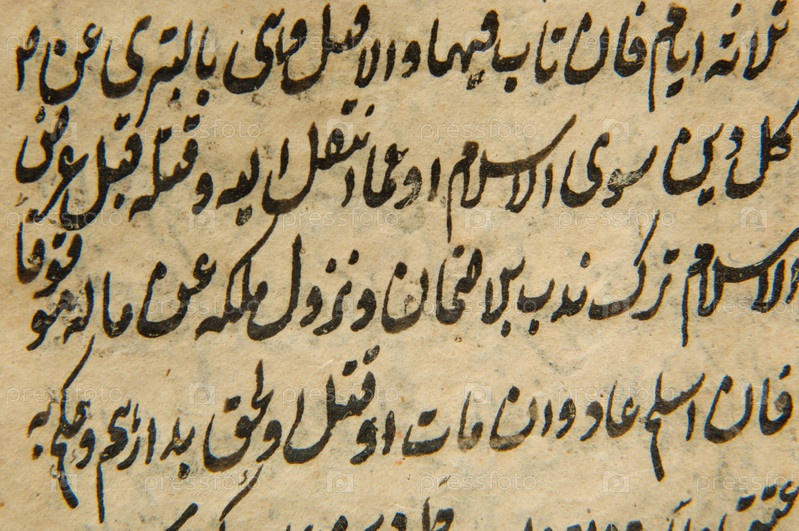 ثلاثة ايام فان تاب فيها والا قتل وهى بالتبرى عن
كل دين سوى الاسلام او عما انتقل اليه وقتله قبل عرض
الاسلام ترك ندب بلا ضمان ونزول ملكه عن ماله موقوفا
فان اسلم عاد وان مات او قتل او لحق بدارهم وحكم به
pressfoto